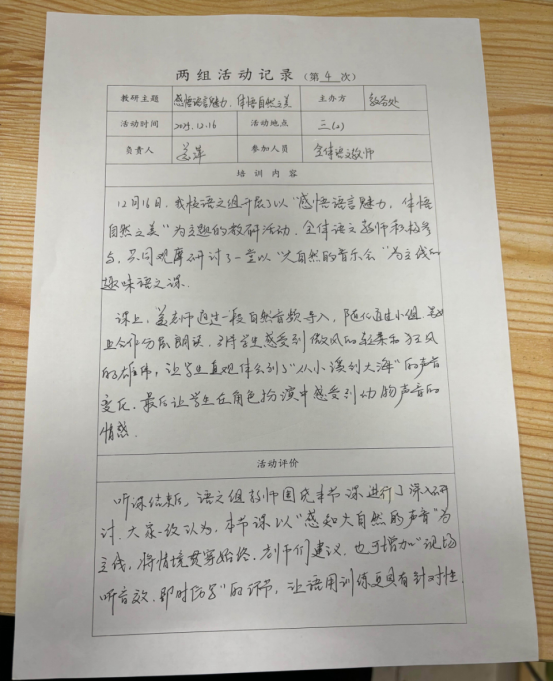 两组活动记录（第 4 次）
教研主题 感悟语言魅力，体悟自然之美 主办方 教务处
活动时间 2024.12.16 活动地点 三(2)
负责人 姜萍 参加人员 全体语文教师
培训内容
12月16日，我校语文组开展了以“感悟语言魅力，体悟
自然之美”为主题的教研活动。全体语文教师积极参
与，共同观摩研讨了一堂以“大自然的音乐会”为主线的
趣味语文课。
课上，姜老师通过一段自然音频导入，随后通过小组
合作分层朗读，引导学生感受到微风的轻柔和狂风
的雄伟，让学生直观体会到了“从小溪到大海”的声音
变化，最后让学生在角色扮演中感受到动物声音的
情感。
活动评价
听课结束后，语文组教师围绕本节课进行了深入研
讨。大家一致认为，本节课以“感知大自然的声音”为
主线，将情境贯穿始终，老师们建议，也可增加“现场
听音效，即时仿写”的环节，让语用训练更具有针对性。